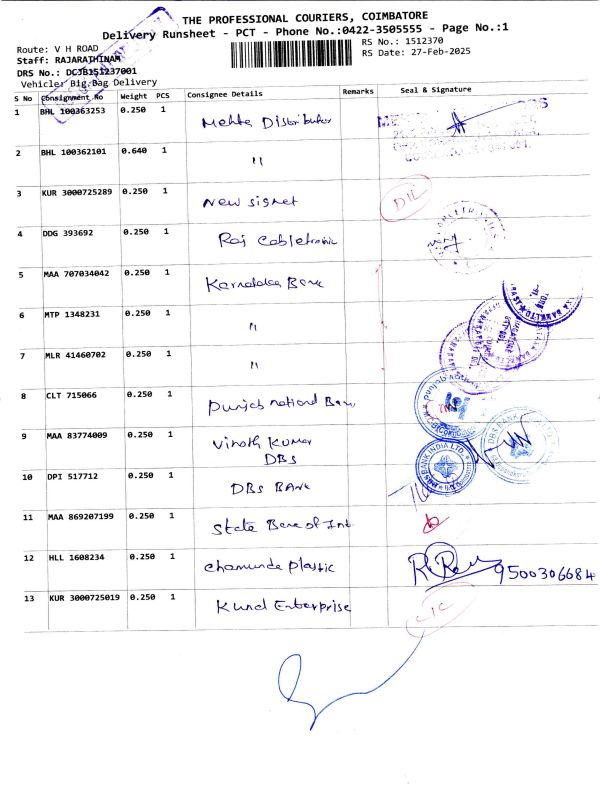 THE PROFESSIONAL COURIERS, COIMBATORE
Delivery Runsheet - PCT - Phone No.:0422-3505555 - Page No.:1
Route: V H ROAD
RS No.: 1512370
Staff: RAJARATHINAM
RS Date: 27-Feb-2025
DRS No.: DCJB151237001
Vehicle: Big Bag Delivery
S No Consignment No Weight PCS Consignee Details Remarks Seal & Signature
1 BHL 100363253 0.250 1 Mehta Distributor
2 BHL 100362101 0.640 1 "
3 KUR 3000725289 0.250 1 New signet
4 DDG 393692 0.250 1 Raj Cabletronic
5 MAA 707034042 0.250 1 Karnataka Bank
6 MTP 1348231 0.250 1 "
7 MLR 41460702 0.250 1 "
8 CLT 715066 0.250 1 Punjab national Bank
9 MAA 83774009 0.250 1 Vinoth Kumar
DBS
10 DPI 517712 0.250 1 DBS BANK
11 MAA 869207199 0.250 1 State Bank of Ind
12 HLL 1608234 0.250 1 chamunda plastic 9500306684
13 KUR 3000725019 0.250 1 Kund Enterprise